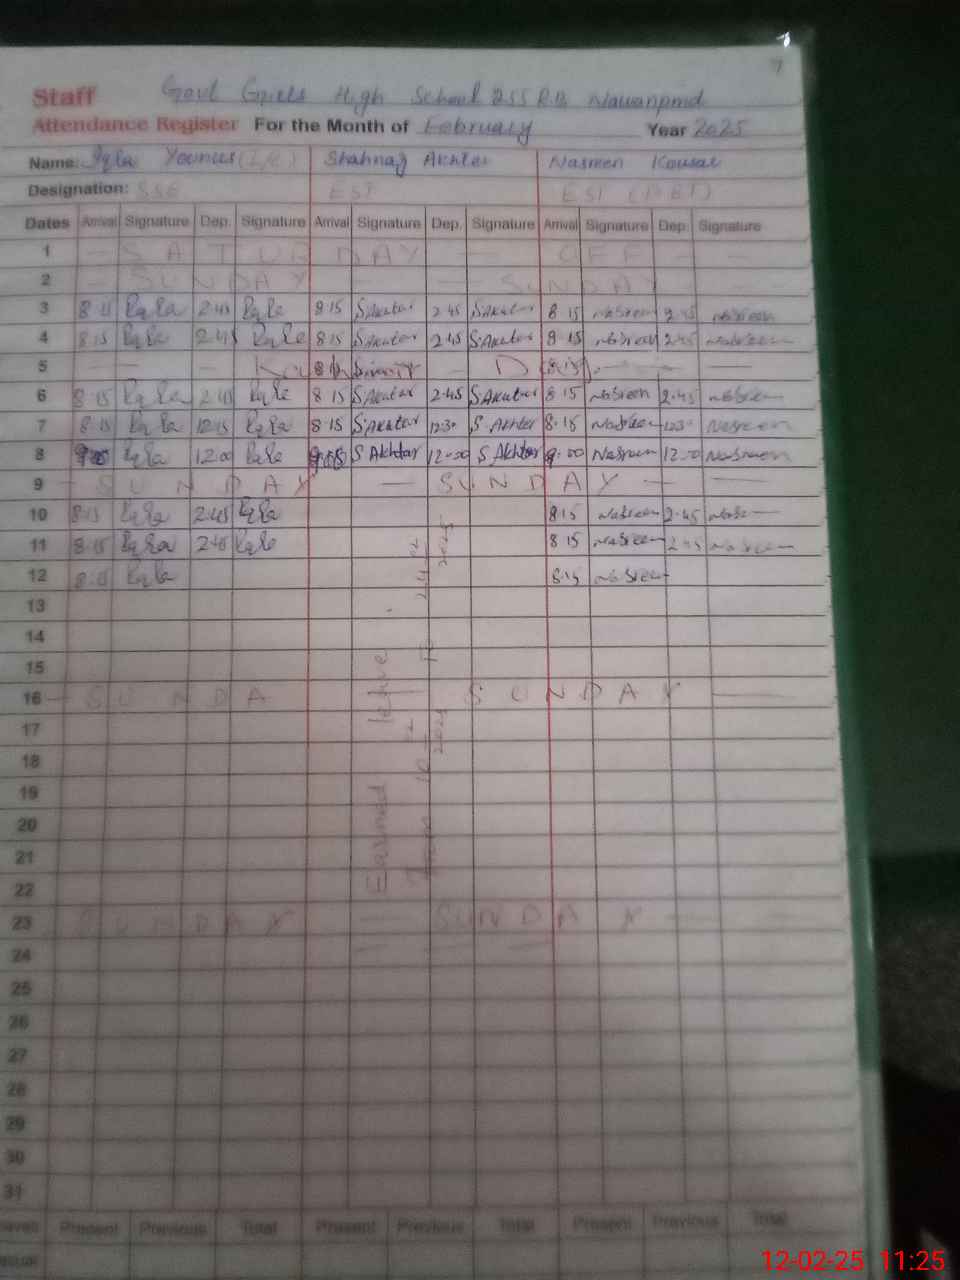 7
Staff Govt Girls High School 255 R.B
Attendance Register For the Month of February Year 2025
Name: Iqla Younus Shahnaz Akhter Nasreen Kousar
Designation: SSE EST EST
Dates Arrival Signature Dep. Signature Arrival Signature Dep. Signature Arrival Signature Dep. Signature
1 — SATURDAY — OFF — —
2 — SUNDAY — — SUNDAY —
3 8·15 2·45 8·15 S.Akhtar 2·45 S.Akhtar 8·15 Nasreen 2·45 Nasreen
4 8·15 2·45 8·15 S.Akhtar 2·45 S.Akhtar 8·15 Nasreen 2·45 Nasreen
5 — —
6 8·15 2·45 8·15 S.Akhtar 2·45 S.Akhtar 8·15 Nasreen 2·45 Nasreen
7 8·15 12·15 8·15 S.Akhtar 12·30 S.Akhtar 8·15 Nasreen 12·30 Nasreen
8 12·00 S Akhtar 12-00 S Akhtar 9·00 Nasreen 12-00 Nasreen
9 — SUNDAY — SUNDAY — —
10 8·15 2·45 8·15 Nasreen 2·45
11 8·15 2·45 8·15 Nasreen 2·45 Nasreen
12 8·15 8·15 Nasreen
13
14
15
16 — SUNDA SUNDAY —
17
18
19
20
21
22
23 SUNDAY — SUNDAY — —
24
25
26
27
28
29
30
31
Earned leave
From 10-02-2025 To 24-02-2025
Present Previous Total Present Previous Total Present Previous Total
12-02-25 11:25